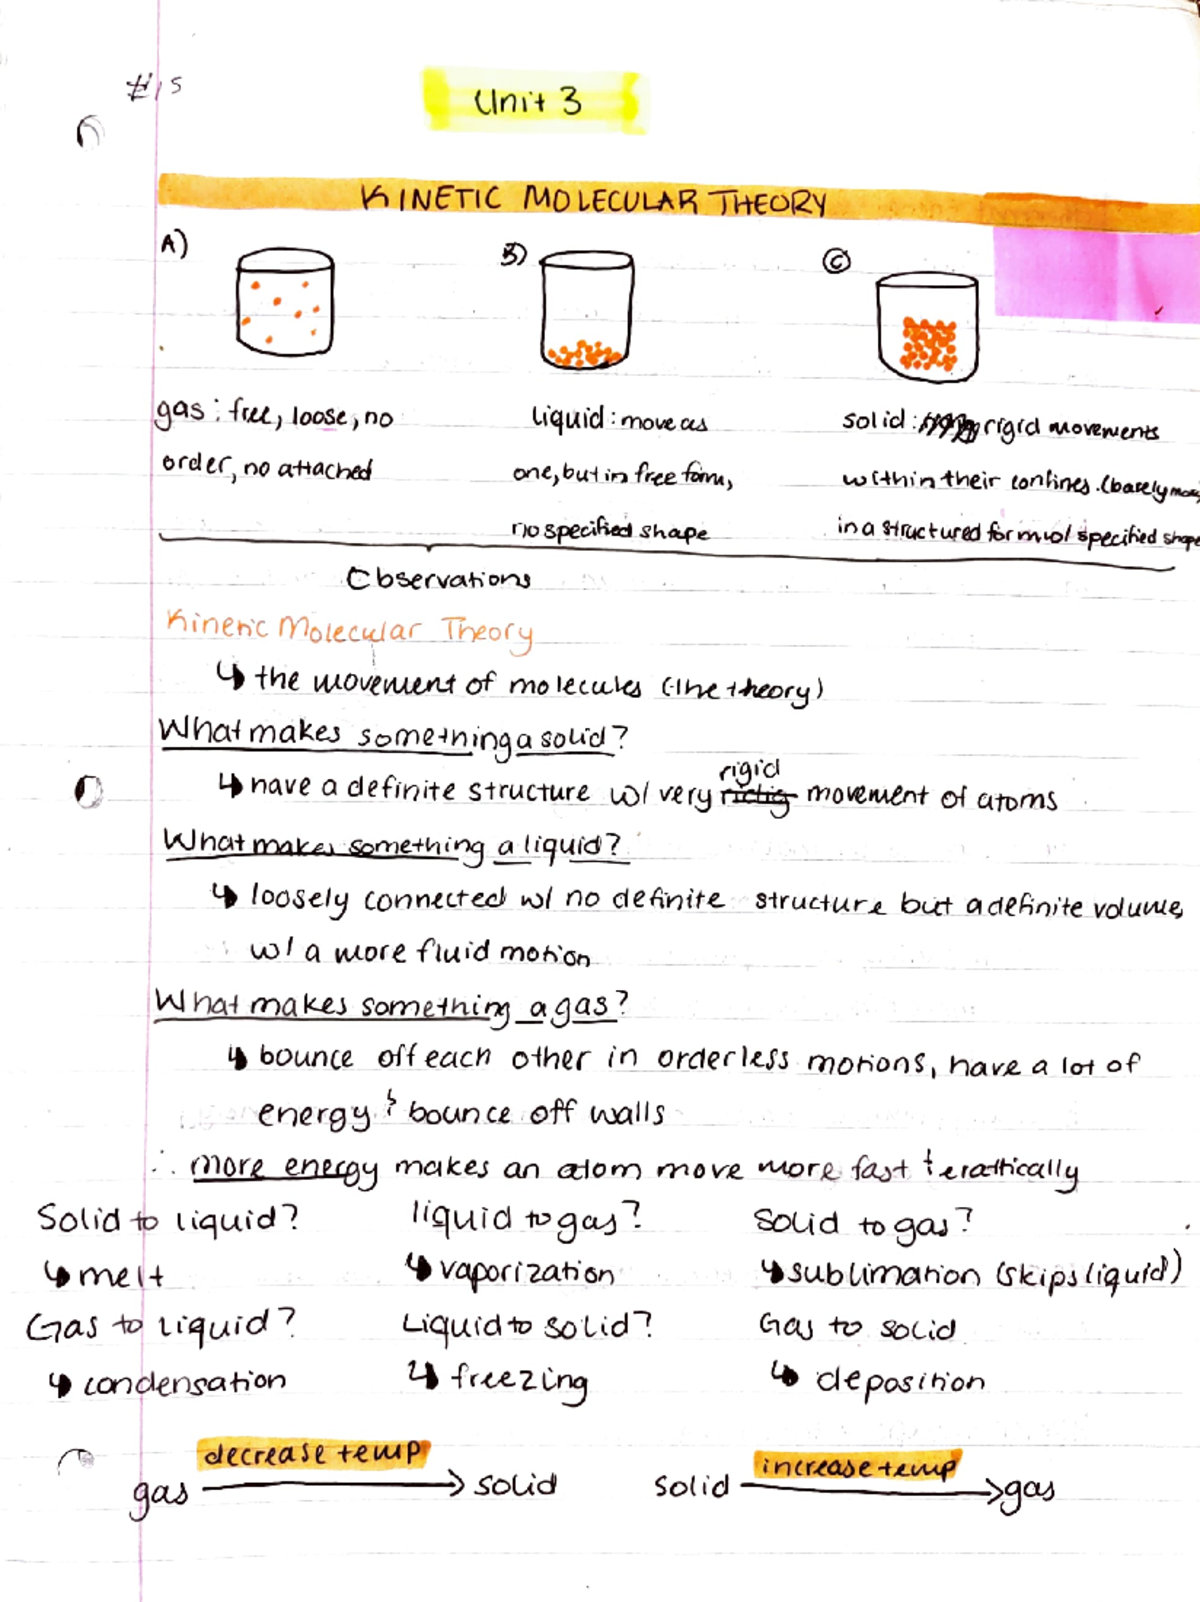 #15
Unit 3
KINETIC MOLECULAR THEORY
A)
B)
C
gas: free, loose, no
order, no attached
liquid: move as
one, but in free form,
no specified shape
solid: rigid movements
within their confines. (barely
in a structured form w/ specified shape
Observations
Kinetic Molecular Theory
↳ the movement of molecules (the theory)
What makes something a solid?
rigid
↳ have a definite structure w/ very movement of atoms
What makes something a liquid?
↳ loosely connected w/ no definite structure but a definite volume,
w/ a more fluid motion
What makes something a gas?
↳ bounce off each other in orderless motions, have a lot of
energy & bounce off walls
∴ more energy makes an atom move more fast & erattically
Solid to liquid?
↳ melt
liquid to gas?
↳ vaporization
Solid to gas?
↳ sublimation (skips liquid)
Gas to liquid?
↳ condensation
Liquid to solid?
↳ freezing
Gas to solid
↳ deposition
decrease temp
gas → solid
increase temp
solid → gas